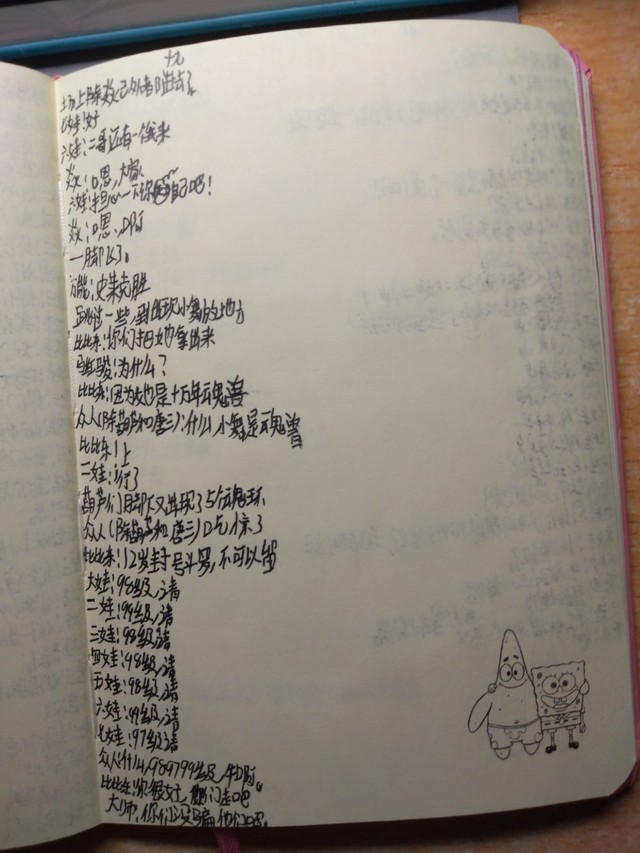 十九
场上除炎己外者口出去了。
七娃:对
六娃:二哥还有一条来
炎:嗯,大家
六娃:担心一下你自己吧!
炎:嗯,啊
一脚飞了。
万能:史莱克胜
跳过一些,到出现小舞的地方
比比东:你们把她拿出来
马红骏:为什么?
比比东:因为她是十万年魂兽
众人(除葫芦和唐三):什么,小舞是魂兽
比比东:上
二娃:行了
葫芦们脚下又出现了5个魂环
众人(除葫芦和唐三)吃惊了
比比东:12岁封号斗罗,不可以留
大娃:98级,请
二娃:99级,请
三娃:98级,请
四娃:98级,请
五娃:98级,请
六娃:99级,请
七娃:97级,请
众人:什么,989799级,牛啊。
比比东:你很好,我们走吧
大师,你们没骗他们吧。